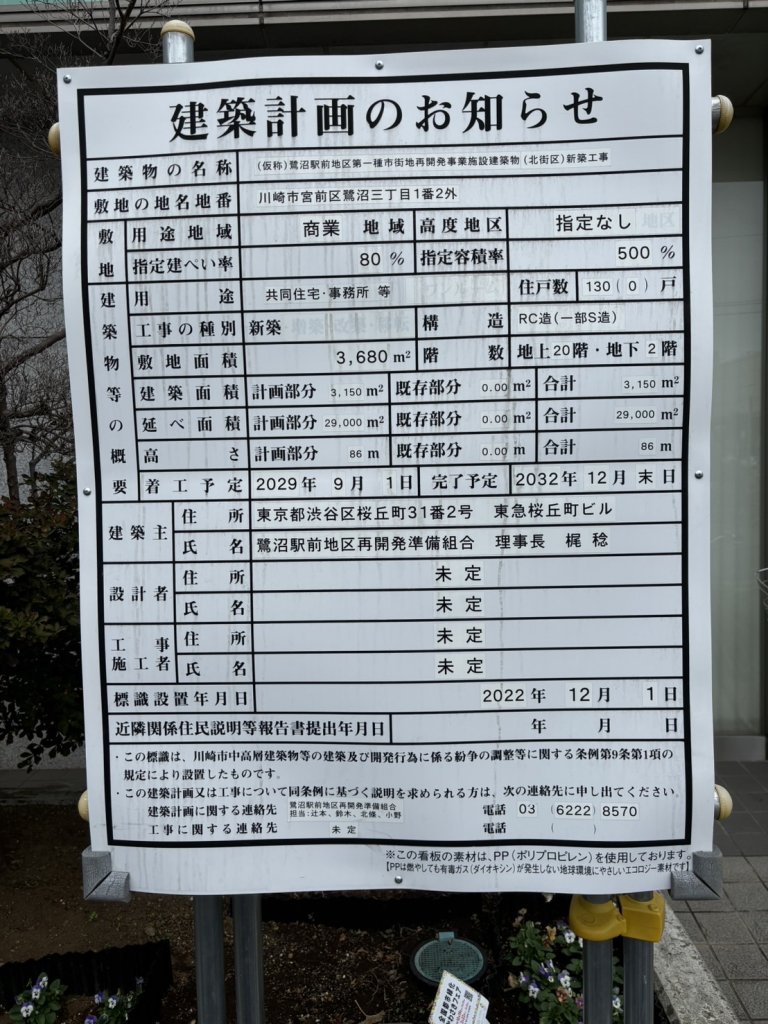 建築計画のお知らせ
建築物の名称 (仮称)鷺沼駅前地区第一種市街地再開発事業施設建築物(北街区)新築工事
敷地の地名地番 川崎市宮前区鷺沼三丁目1番2外
敷地 用途地域 商業 地域 高度地区 指定なし
指定建ぺい率 80 % 指定容積率 500 %
建築物等の概要 用途 共同住宅・事務所 等 住戸数 130 (0) 戸
工事の種別 新築 構造 RC造(一部S造)
敷地面積 3,680 m² 階数 地上20階・地下2階
建築面積 計画部分 3,150 m² 既存部分 0.00 m² 合計 3,150 m²
延べ面積 計画部分 29,000 m² 既存部分 0.00 m² 合計 29,000 m²
高さ 計画部分 86 m 既存部分 0.00 m 合計 86 m
着工予定 2029年 9月 1日 完了予定 2032年 12月 末日
建築主 住所 東京都渋谷区桜丘町31番2号 東急桜丘町ビル
氏名 鷺沼駅前地区再開発準備組合 理事長 梶 稔
設計者 住所 未定
氏名 未定
工事施工者 住所 未定
氏名 未定
標識設置年月日 2022年 12月 1日
近隣関係住民説明等報告書提出年月日 年 月 日
・この標識は、川崎市中高層建築物等の建築及び開発行為に係る紛争の調整等に関する条例第9条第1項の
規定により設置したものです。
・この建築計画又は工事について同条例に基づく説明を求められる方は、次の連絡先に申し出てください。
建築計画に関する連絡先 鷺沼駅前地区再開発準備組合 電話 03 (6222) 8570
担当:辻本、鈴木、北條、小野
工事に関する連絡先 未定 電話 ( )
※この看板の素材は、PP(ポリプロピレン)を使用しております。
【PPは燃やしても有毒ガス(ダイオキシン)が発生しない地球環境にやさしいエコロジー素材です】
全国都市緑化
かわさきフェア